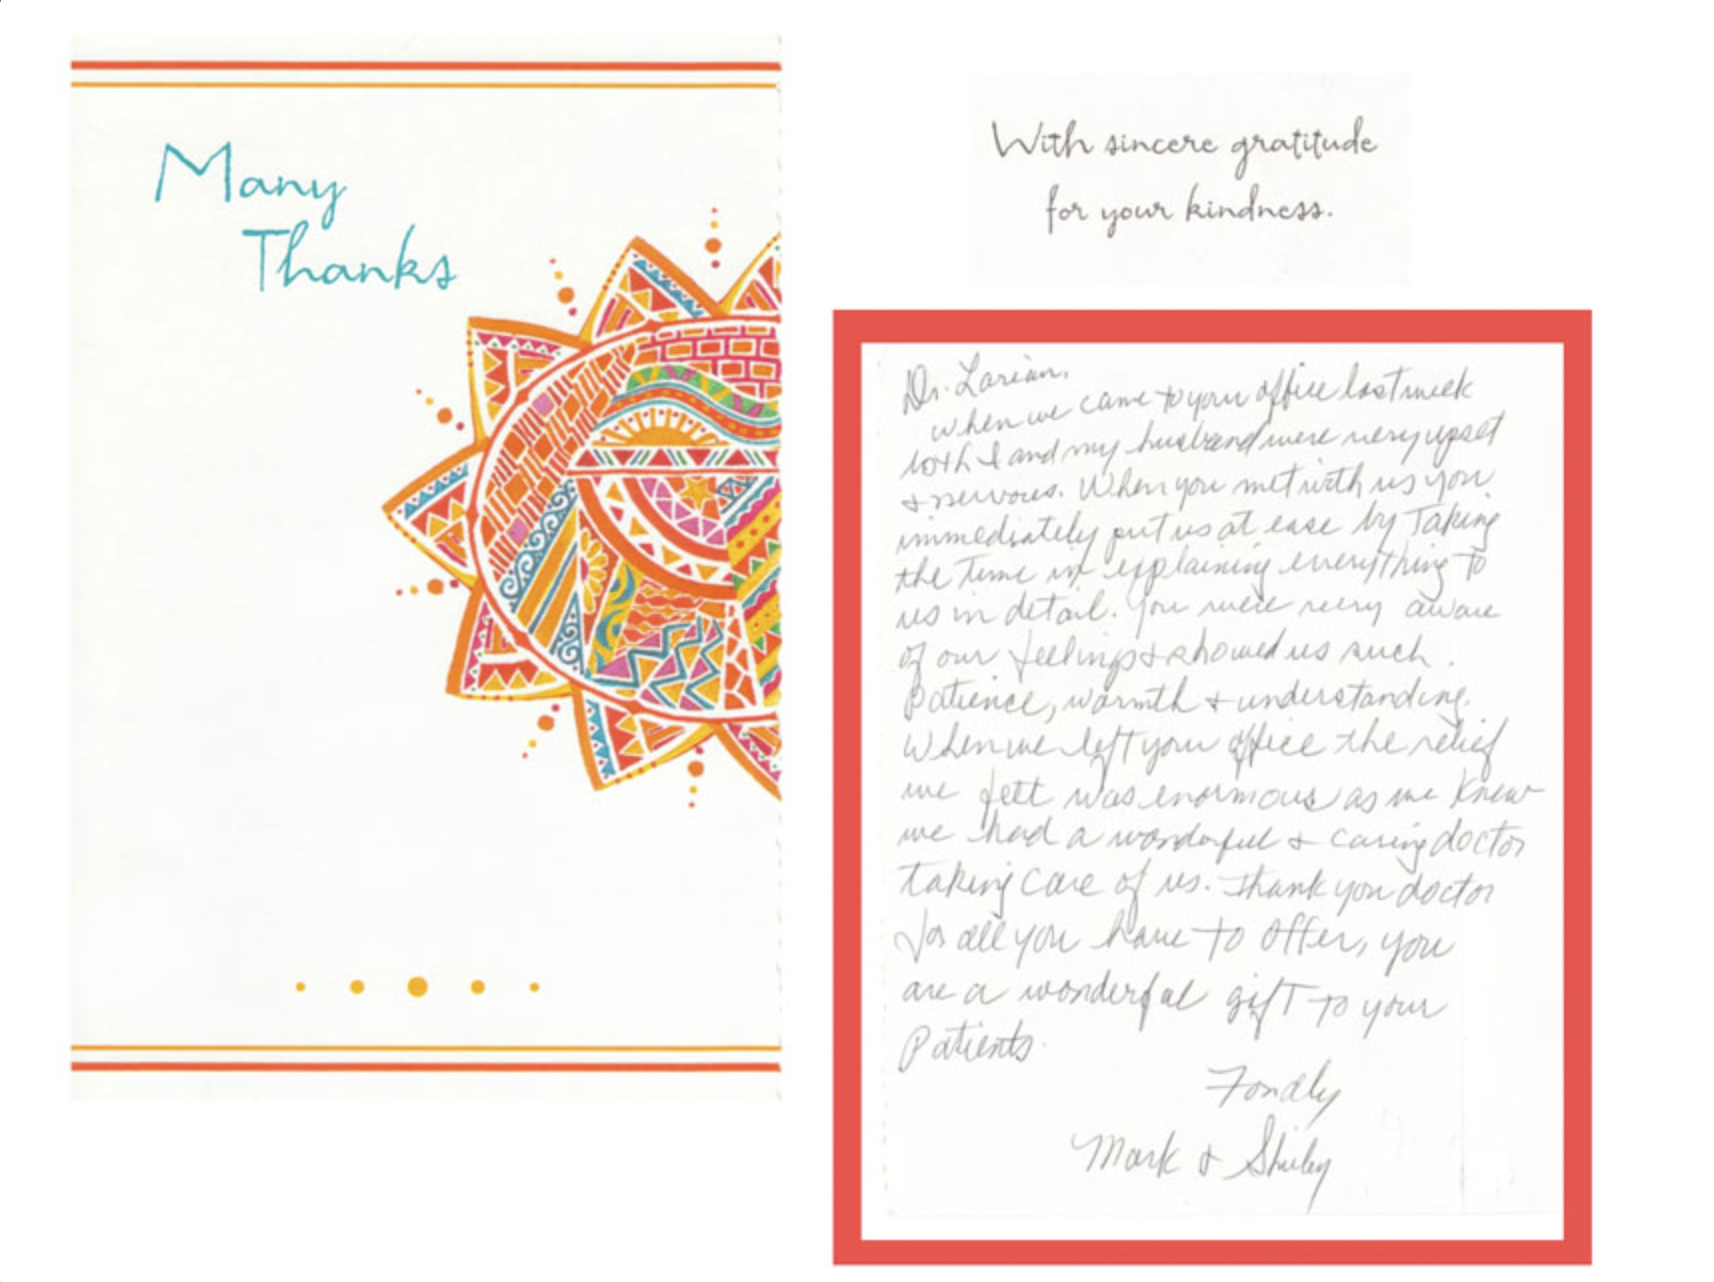 Many
Thanks
With sincere gratitude
for your kindness.
Dr. Larian,
When we came to your office last week
both I and my husband were very upset
& nervous. When you met with us you
immediately put us at ease by Taking
the Time in explaining everything to
us in detail. You were very aware
of our feelings & showed us such
patience, warmth & understanding.
When we left your office the relief
we felt was enormous as we knew
we had a wonderful & caring doctor
taking care of us. Thank you doctor
for all you have to offer, you
are a wonderful gift to your
Patients.
Fondly
Mark & Shirley